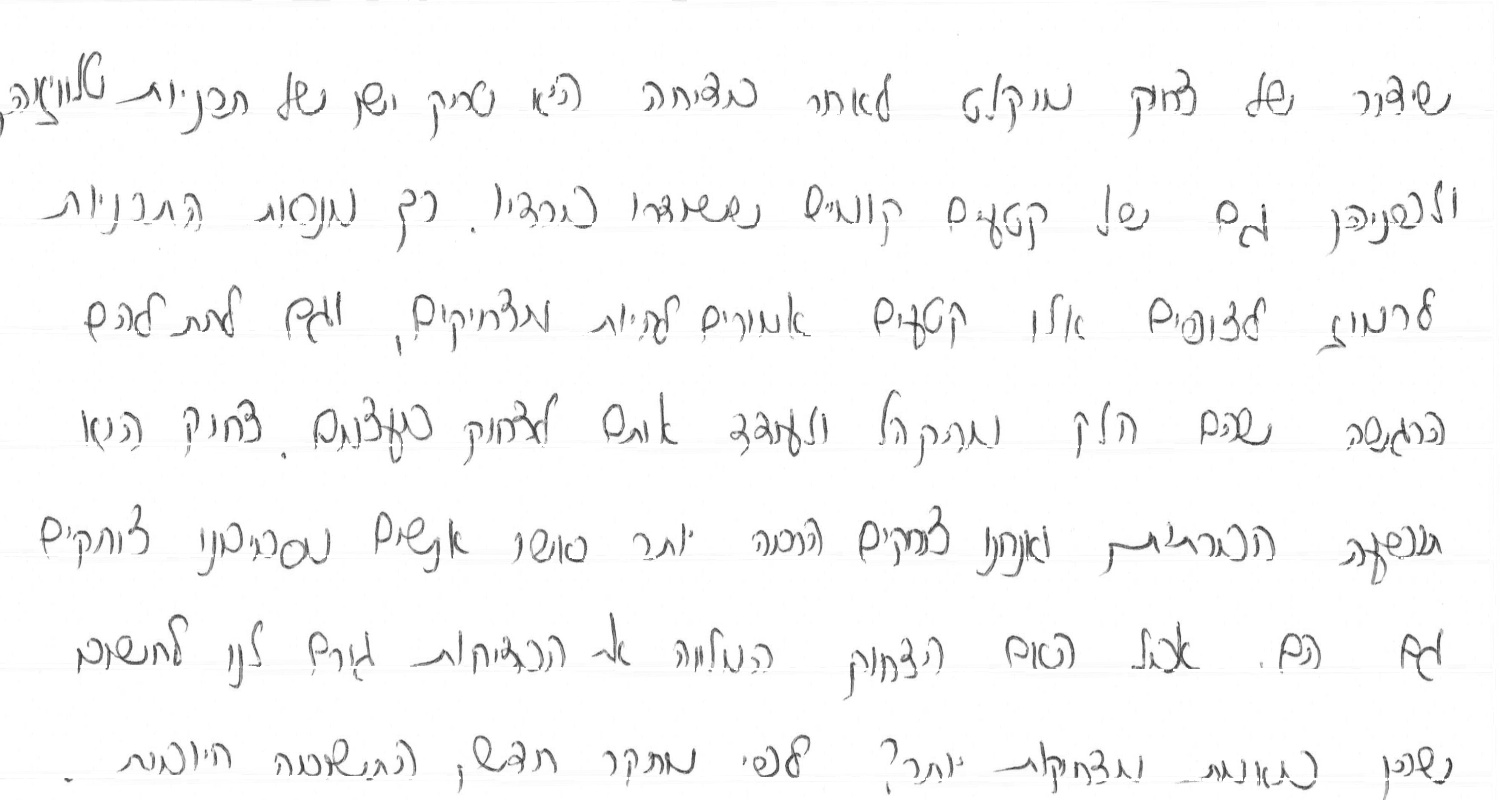 שידור של צחוק מוקלט לאחר בדיחה היא טריק ישן של תכניות טלוויזיה,
ולפניהן גם של קטעים קומיים ששודרו ברדיו. כך מנסות התכניות
לרמוז לצופים אלו קטעים אמורים להיות מצחיקים, וגם לתת להם
הרגשה שהם חלק מהקהל ולעודד אותם לצחוק בעצמם. צחוק הוא
תופעה חברתית ואנחנו צוחקים הרבה יותר כאשר אנשים מסביבנו צוחקים
גם הם. אבל האם הצחוק המלווה את הבדיחות גורם לנו לחשוב
שהן באמת מצחיקות יותר? לפי מחקר חדש, התשובה חיובית.